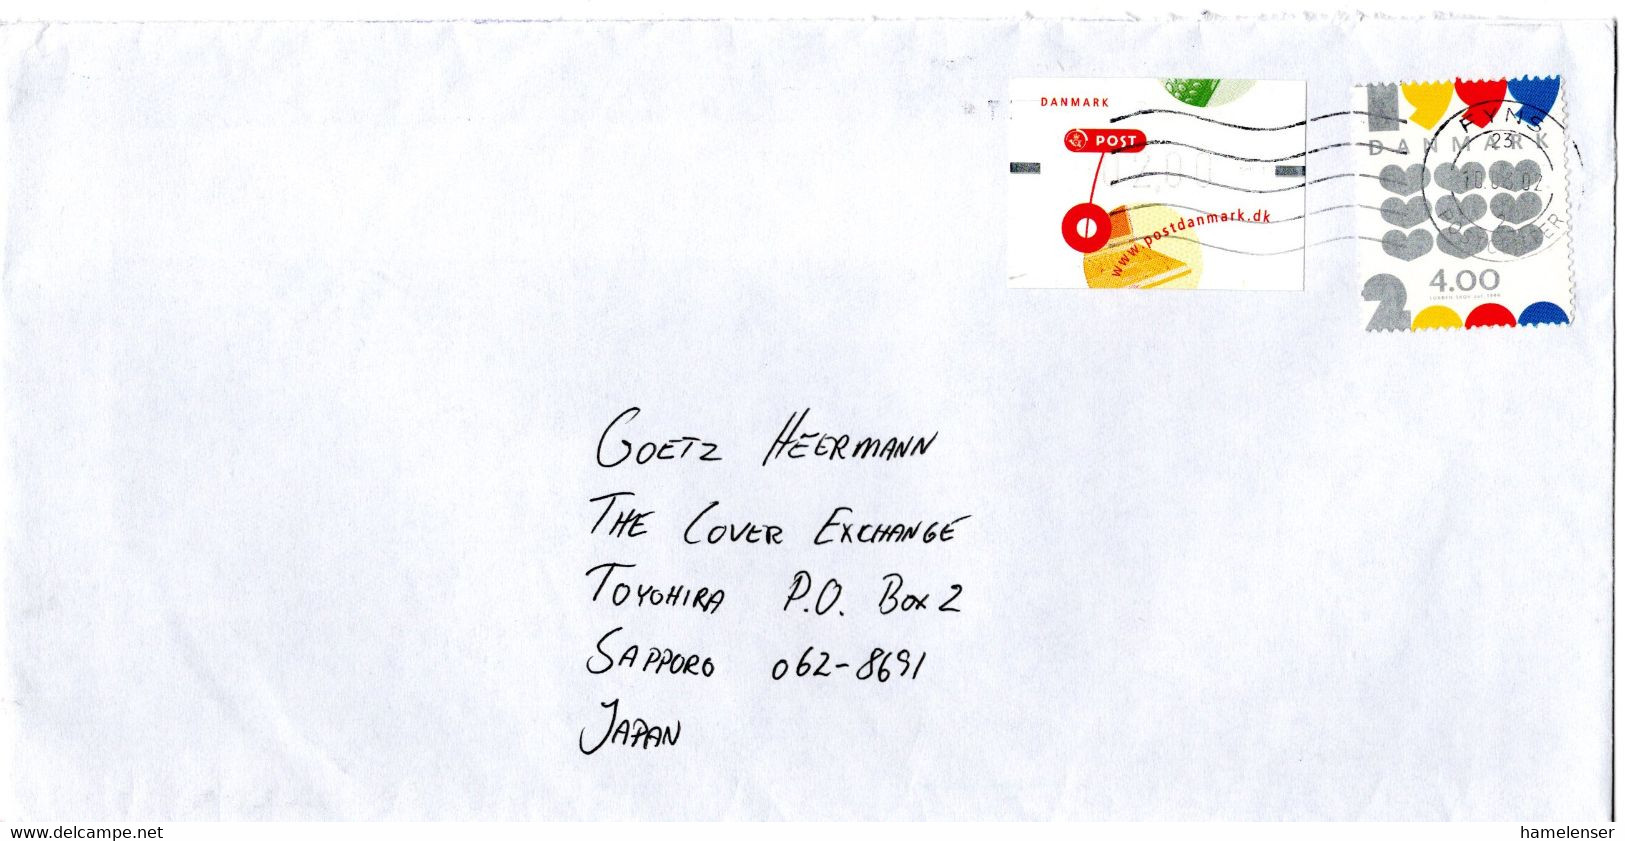 DANMARK
POST
2,00
www.postdanmark.dk
FYNS
23
DANMARK
4.00
2
GOETZ HEERMANN
THE COVER EXCHANGE
TOYOHIRA P.O. BOX 2
SAPPORO 062-8691
JAPAN
www.delcampe.net
hamelenser